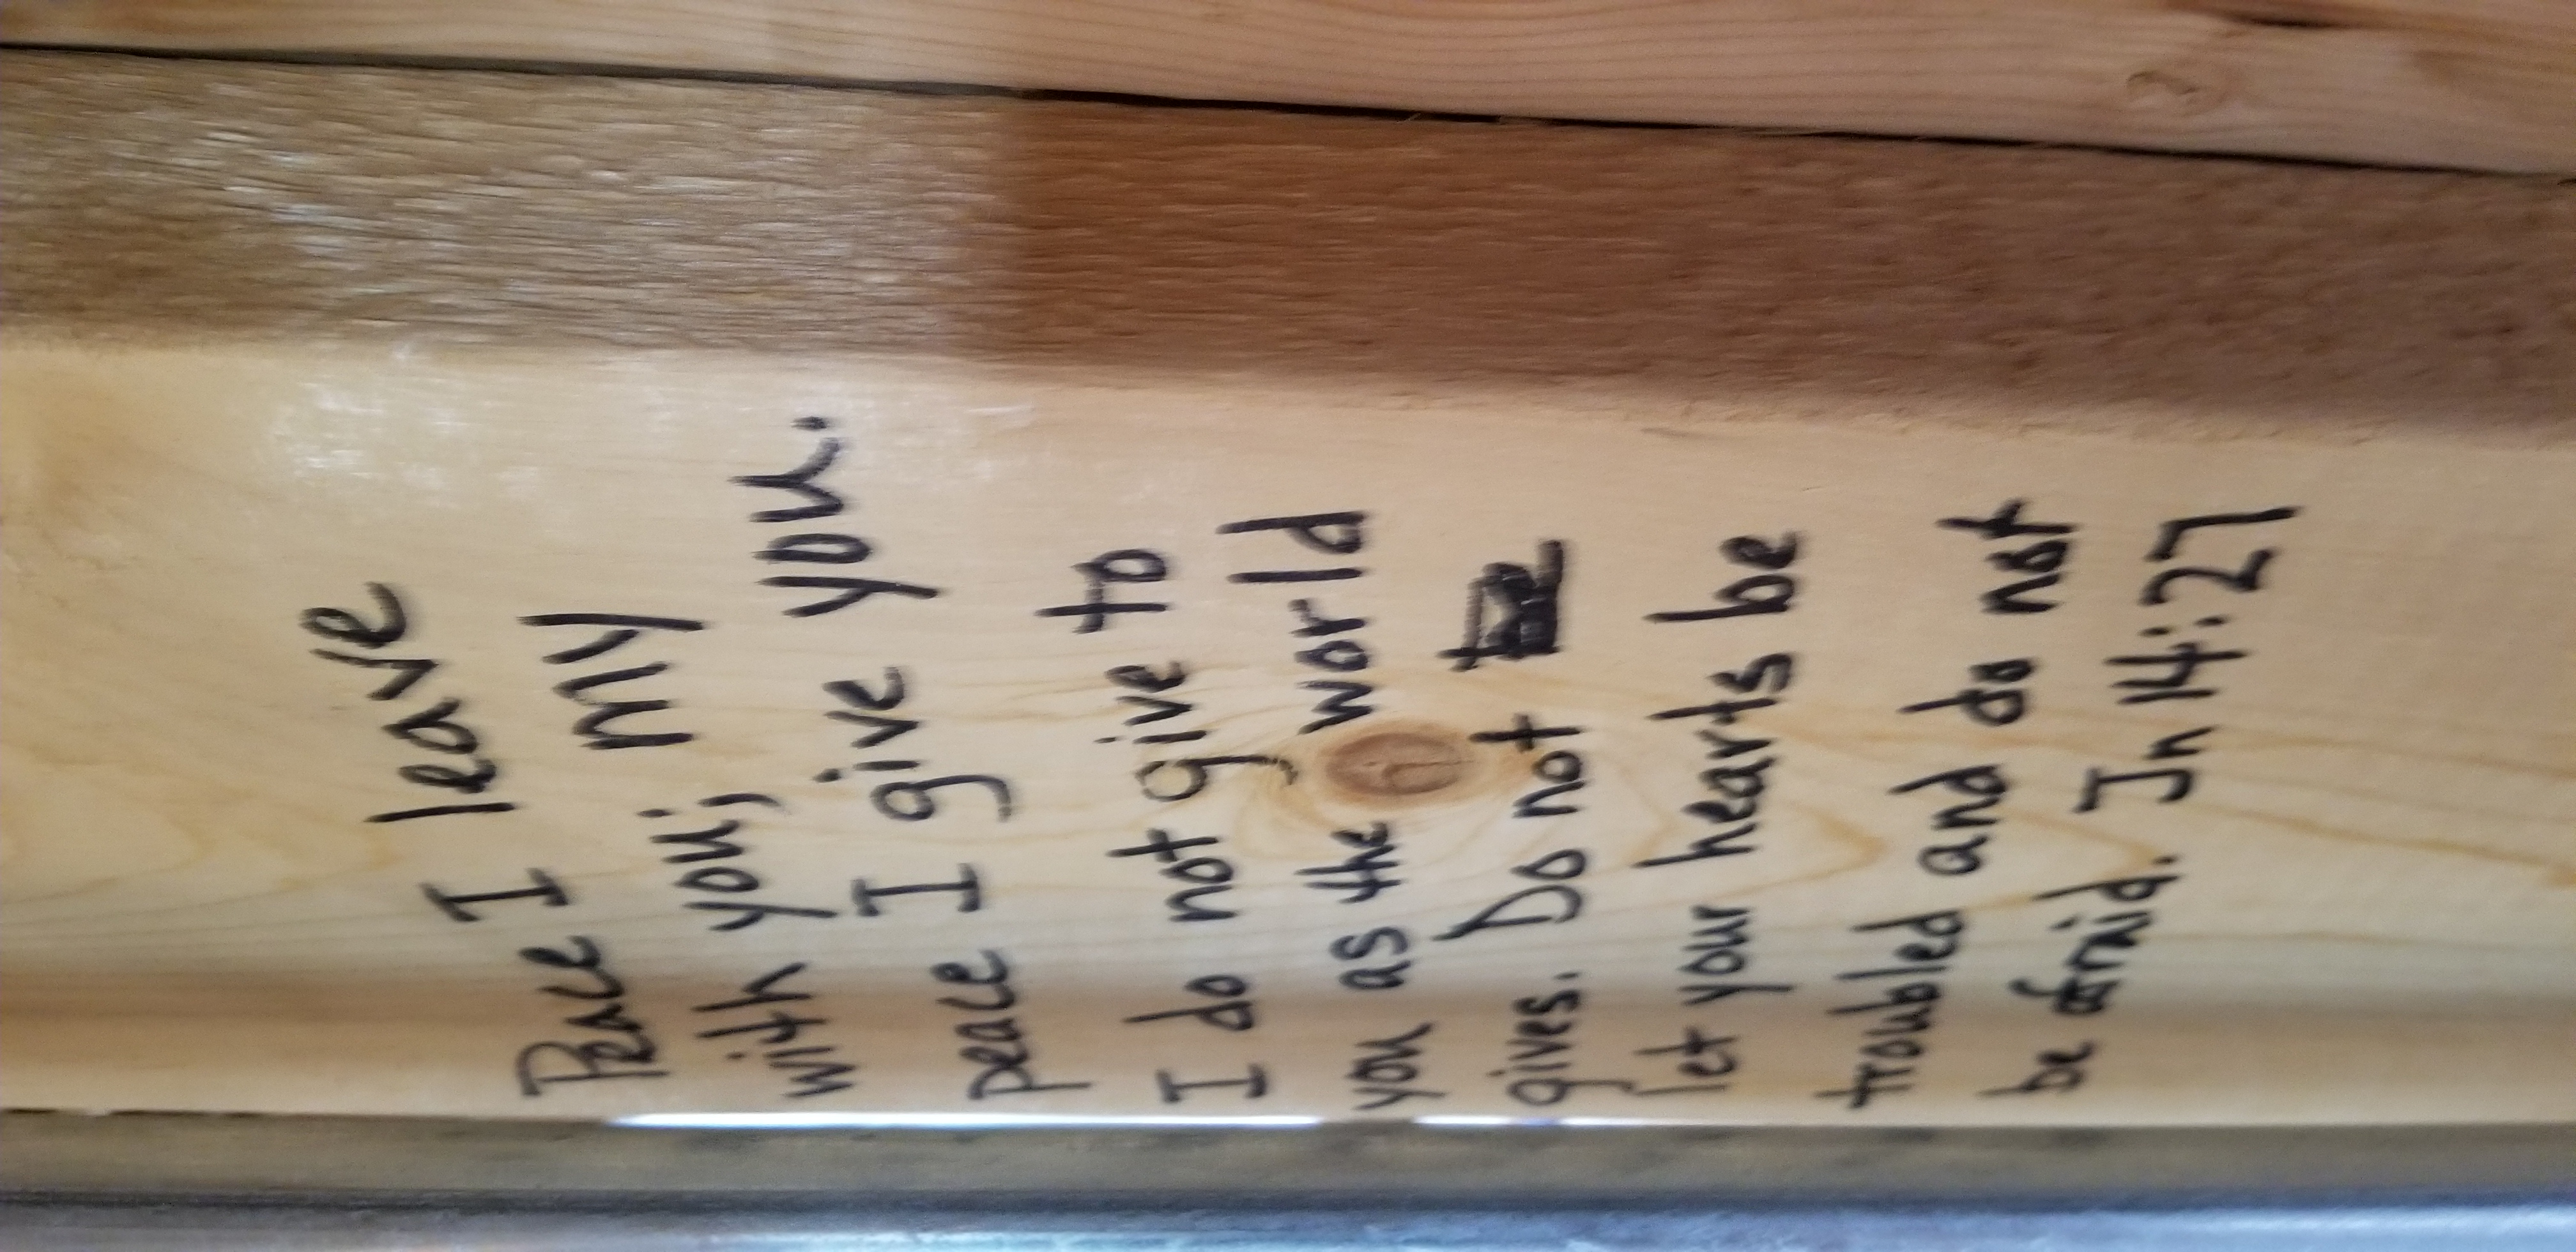 Peace I leave
with you; my
peace I give you.
I do not give to
you as the world
gives. Do not
let your hearts be
troubled and do not
be afraid. Jn 14:27